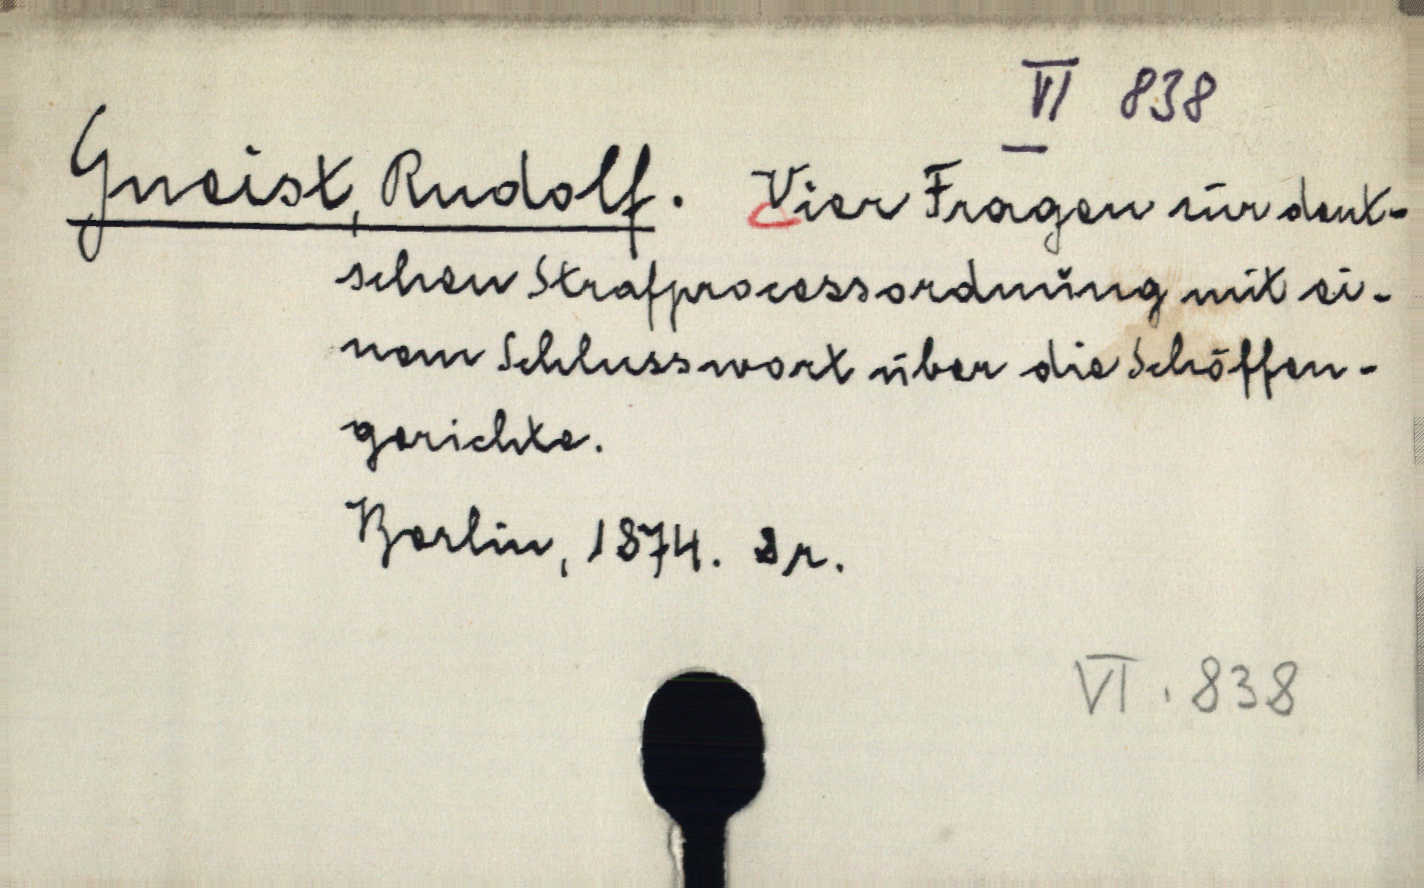 VI 838
Gneist, Rudolf. Vier Fragen zur deut-
schen Strafprocessordnung mit ei-
nem Schlusswort über die Schöffen-
gerichte.
Berlin, 1874. 8r.
VI. 838